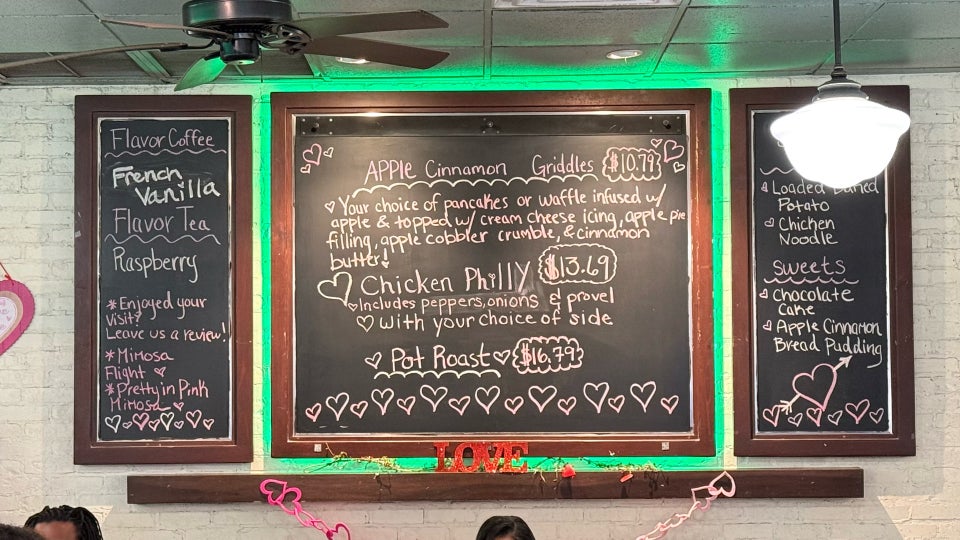 Flavor Coffee
French
Vanilla
Flavor Tea
Raspberry
* Enjoyed your
visit?
Leave us a review!
* Mimosa
Flight
* Pretty in Pink
Mimosa
APPLE Cinnamon Griddles $10.79
Your choice of pancakes or waffle infused w/
apple & topped w/ cream cheese icing, apple pie
filling, apple cobbler crumble, & cinnamon
butter!
Chicken Philly $13.69
Includes peppers, onions & provel
with your choice of side
Pot Roast $16.79
Loaded Baked
Potato
Chicken
Noodle
Sweets
Chocolate
Cake
Apple Cinnamon
Bread Pudding
LOVE